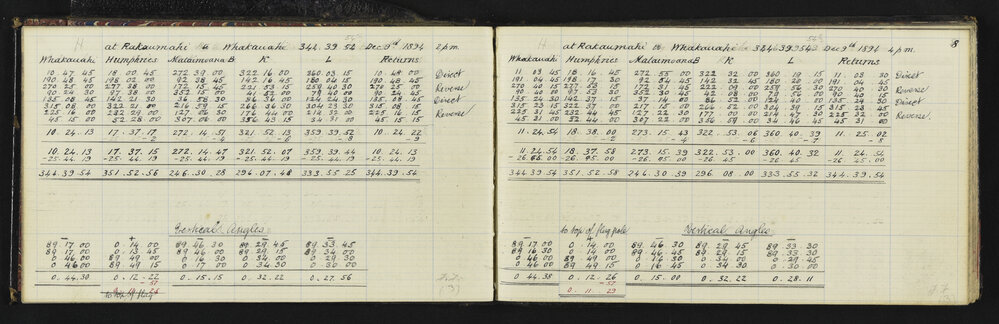 H at Rakaumahi to Whakauahi 344.39.54 Dec 9th 1894 2 p.m.
Whakauahi Humphries Mataimoana B K L Returns
10 47 45 18 00 45 272 39 00 322 16 00 360 03 15 10 48 00 Direct
190 48 45 198 02 00 92 38 45 142 16 45 180 04 15 190 48 45
270 25 00 297 38 00 172 15 45 221 53 15 259 40 30 270 25 00 Reverse
90 24 30 352 15 00 41 53 00 79 40 00 90 24 45
135 08 45 142 21 30 36 58 30 86 36 00 124 24 30 135 08 45 Direct
315 08 00 322 21 00 216 59 15 266 36 30 304 23 30 315 08 15
225 16 00 232 29 00 127 06 30 176 44 00 214 32 00 225 16 15 Reverse
45 15 45 52 28 00 307 06 15 356 43 15 34 31 00 45 15 45
10.24.13 17.37.17 272.14.51 321.52.13 359.39.52 10.24.22
-2 -4 -6 -8 -9
10.24.13 17.37.15 272.14.47 321.52.07 359.39.44 10.24.13
-25.44.19 -25.44.19 -25.44.19 -25.44.19 -25.44.19 -25.44.19
344.39.54 351.52.56 246.30.28 296.07.48 333.55.25 344.39.54
Vertical Angles.
89 17 00 0 14 00 89 46 30 89 29 45 89 33 45
89 17 00 0 13 45 89 46 00 89 29 15 89 34 00
0 46 00 89 49 00 0 16 30 0 34 00 0 29 30
0 46 00 89 49 15 0 17 00 0 34 30 0 30 00
0.44.30 0.12.22 0.15.15 0.32.22 0.27.56
-57
to top of flag
8
H at Rakaumahi to Whakauahi 344.39.54 Dec 9th 1894 4 p.m.
Whakauahi Humphries Mataimoana B K L Returns
11 03 45 18 16 45 272 55 00 322 32 00 360 19 15 11 03 30 Direct
191 04 45 198 17 30 92 54 45 142 32 45 180 20 00 191 04 45
270 40 00 277 53 15 172 31 45 222 09 00 259 56 30 270 40 30 Reverse
90 40 15 97 53 30 352 30 45 42 08 00 79 56 00 90 40 15
135 24 30 142 37 15 37 14 00 86 52 00 124 40 00 135 24 30 Direct
315 23 15 322 37 00 217 15 00 266 52 00 304 39 15 315 23 45
225 31 45 232 44 45 127 22 30 177 00 00 214 47 30 225 32 00 Reverse
45 31 00 52 44 00 307 22 00 356 59 00 34 46 45 45 31 00
11.24.54 18.38.00 273.15.43 322.53.06 360.40.39 11.25.02
-2 -4 -6 -7 -8
11.24.54 18.37.58 273.15.39 322.53.00 360.40.32 11.24.54
-26.45.00 -26.45.00 -26.45.00 -26.45 -26.45 -26.45.00
344.39.54 351.52.58 246.30.39 296.08.00 333.55.32 344.39.54
to top of flag pole Vertical Angles
89 17 00 0 14 00 89 46 30 89 29 45 89 33 30
89 16 30 0 14 00 89 46 45 89 29 15 89 33 30
0 46 00 89 49 00 0 16 30 0 34 00 0 29 45
0 46 00 89 49 15 0 16 45 0 34 30 0 30 00
0.44.38 0.12.26 0.15.00 0.32.22 0.28.11
-57
0.11.29